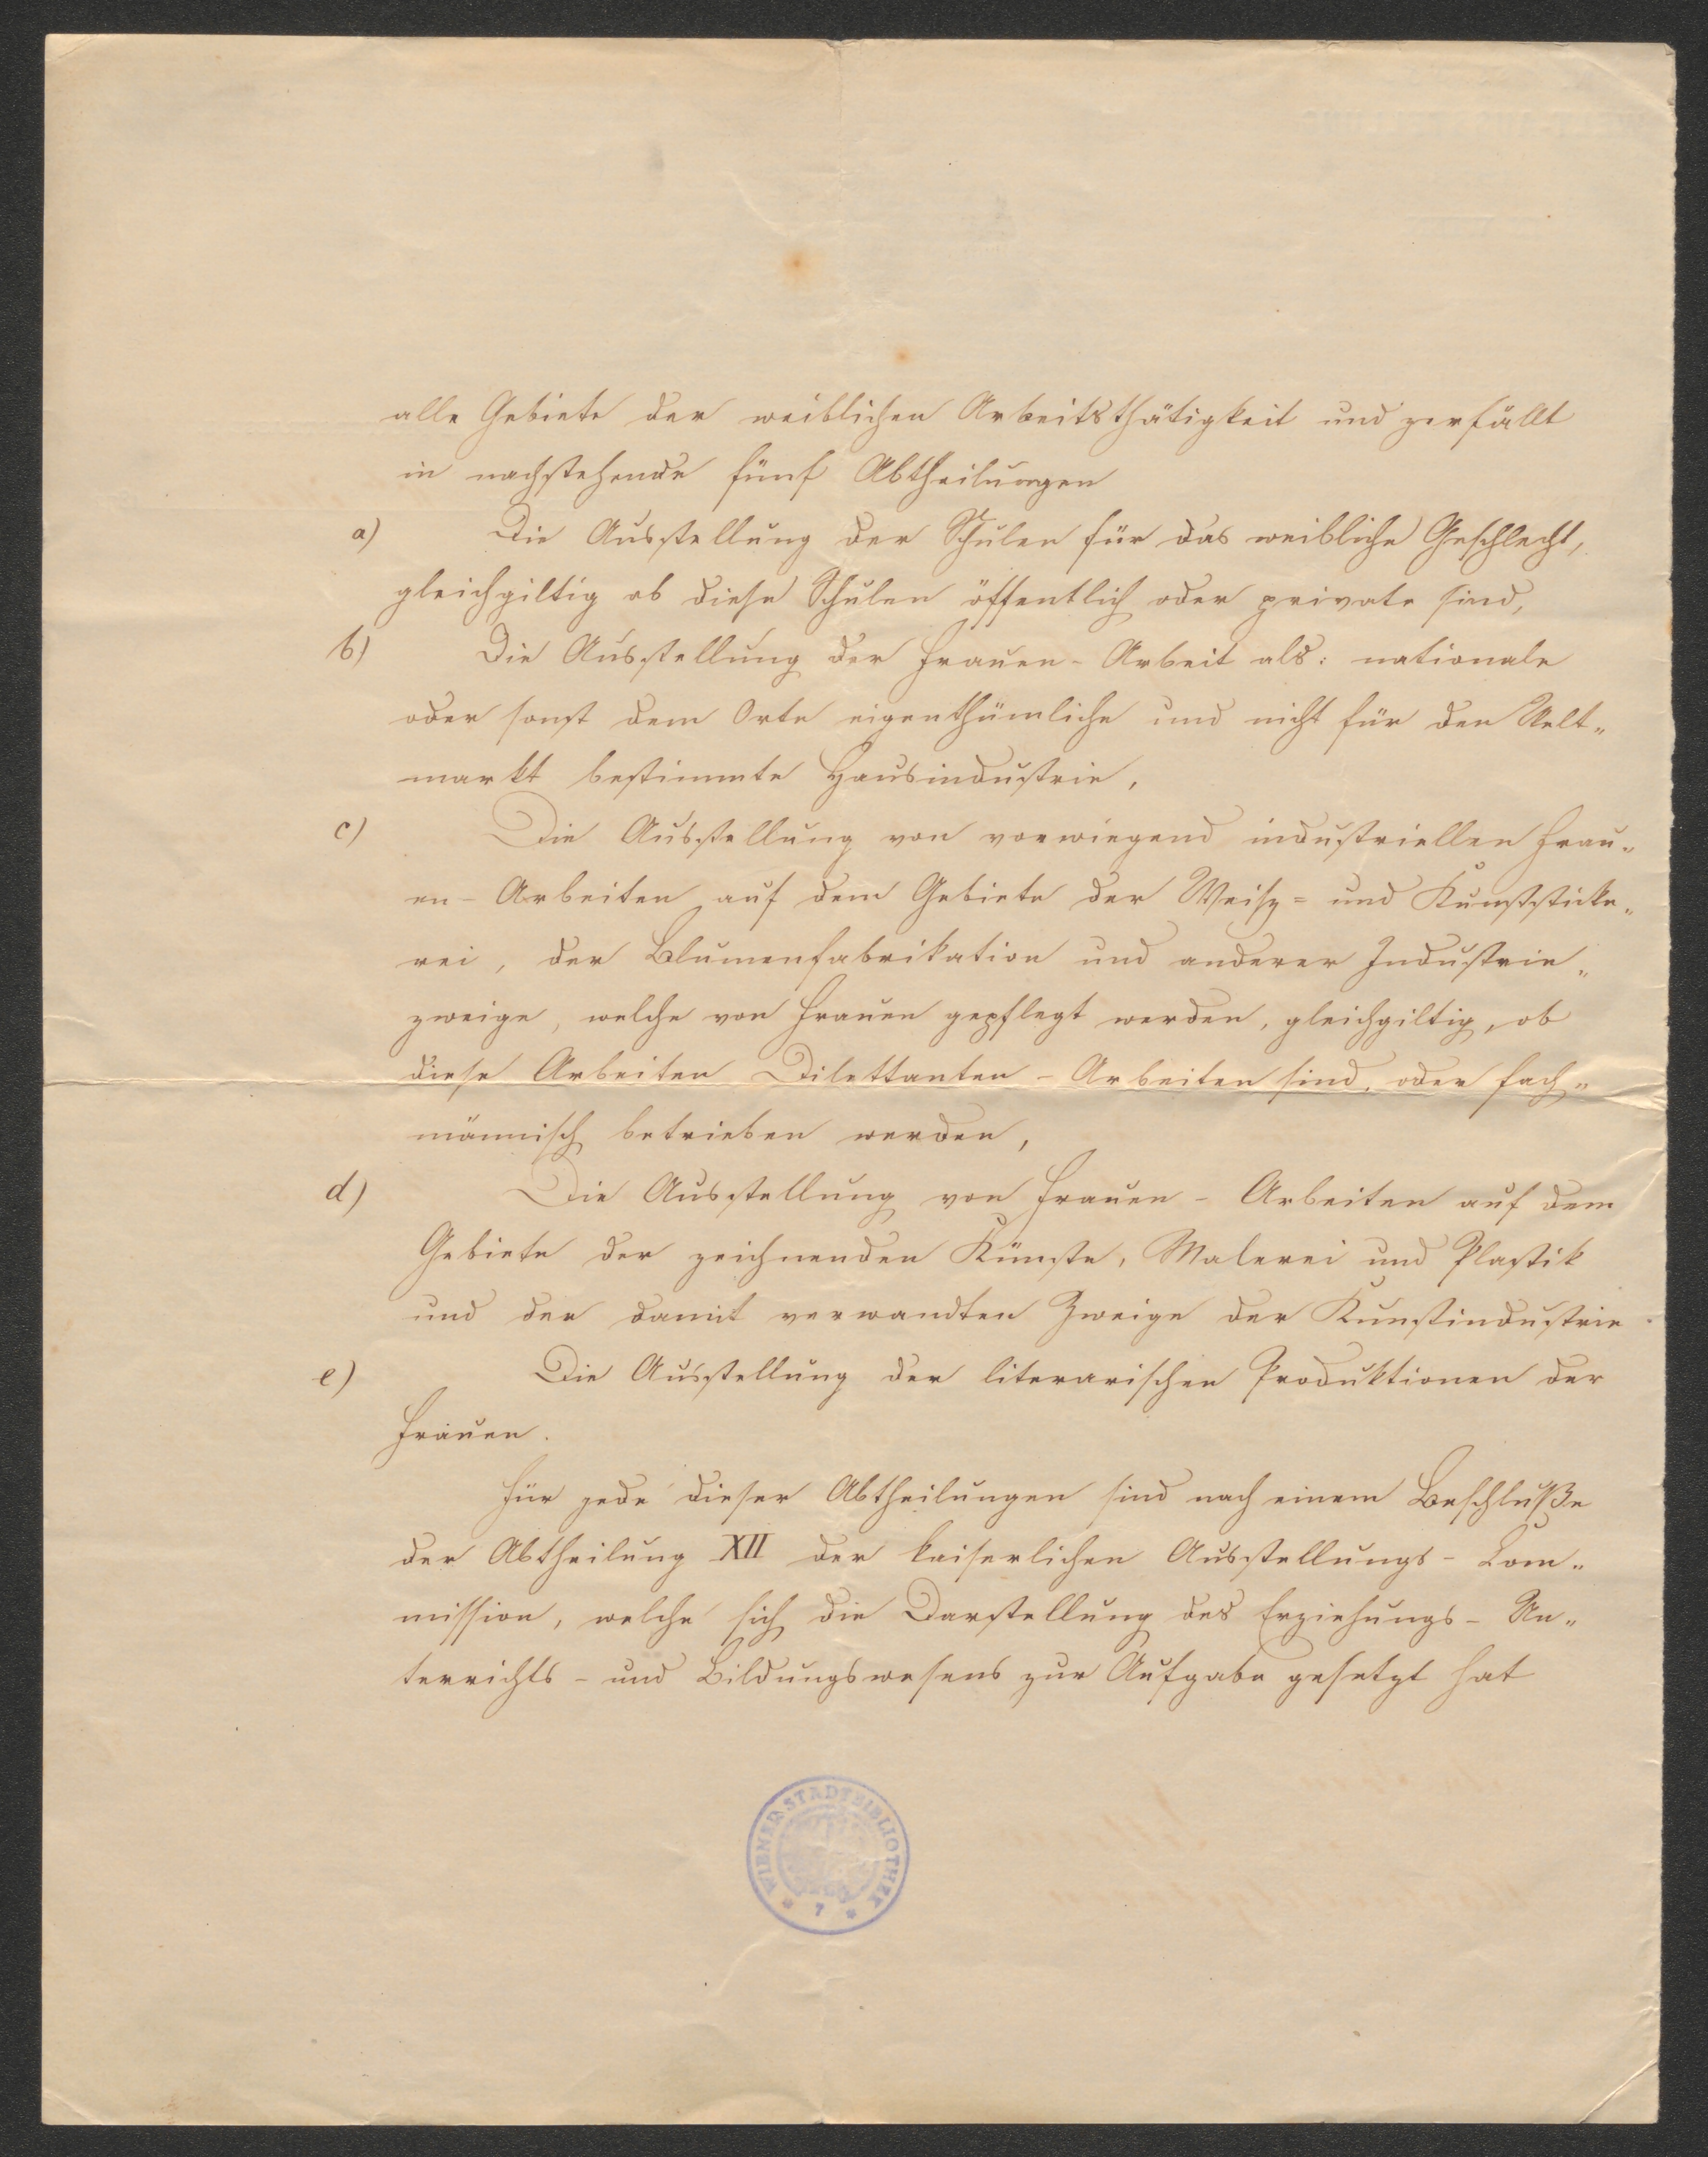 alle Gebiete der weiblichen Arbeitsthätigkeit und zerfällt
in nachstehende fünf Abtheilungen
a) Die Ausstellung der Schulen für das weibliche Geschlecht,
gleichgiltig ob diese Schulen öffentlich oder private sind,
b) Die Ausstellung der Frauen-Arbeit als: nationale
oder sonst dem Orte eigenthümliche und nicht für den Welt-
markt bestimmte Hausindustrie,
c) Die Ausstellung von vorwiegend industriellen Frau-
en-Arbeiten auf dem Gebiete der Weisz- und Kunststicke-
rei, der Blumenfabrikation und anderer Industrie-
zweige, welche von Frauen gepflegt werden, gleichgiltig, ob
diese Arbeiten Dilettanten-Arbeiten sind, oder fach-
männisch betrieben werden,
d) Die Ausstellung von Frauen-Arbeiten auf dem
Gebiete der zeichnenden Künste, Malerei und Plastik
und der damit verwandten Zweige der Kunstindustrie
e) Die Ausstellung der literarischen Produktionen der
Frauen.
Für jede dieser Abtheilungen sind nach einem Beschluße
der Abtheilung XII der kaiserlichen Ausstellungs-Com-
mission, welche sich die Darstellung des Erziehungs- Un-
terrichts- und Bildungswesens zur Aufgabe gesetzt hat
WIENER STADTBIBLIOTHEK
* 7 *